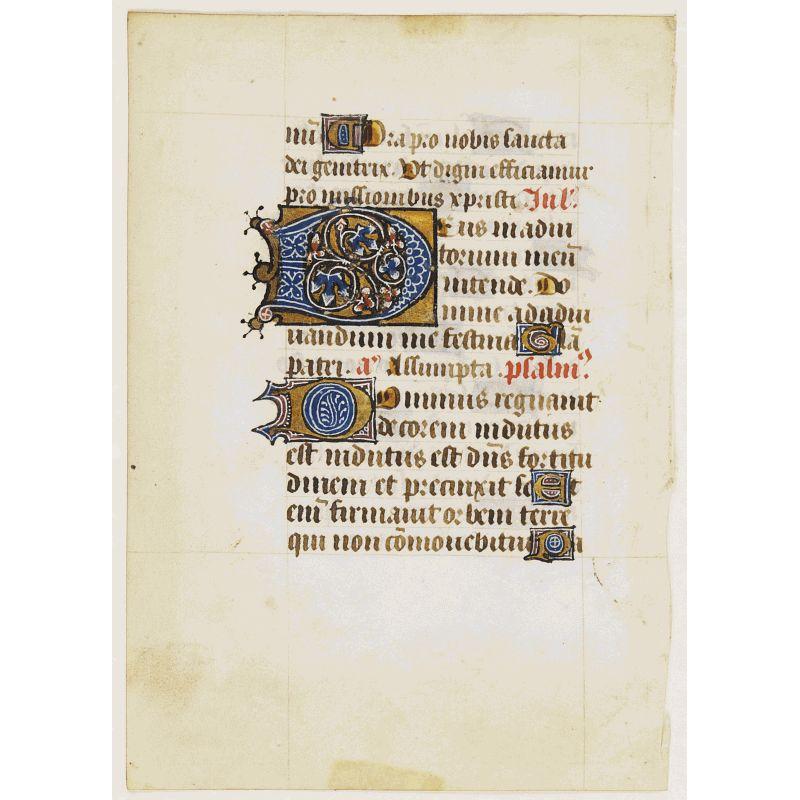 nū Ora pro nobis sancta
dei genitrix. Ut digni efficiamur
promissionibus xpristi Iul'.
Deus in adiu
torium meū
intende. Do
mine ad adiu
uandum me festina Glā
patri. aͣ Assumpta. psalm9.
Dominus regnauit
decorem indutus
est indutus est dn̄s fortitu
dinem et precinxit se Et
enī firmauit orbem terre
qui non cōmouebitur Pa